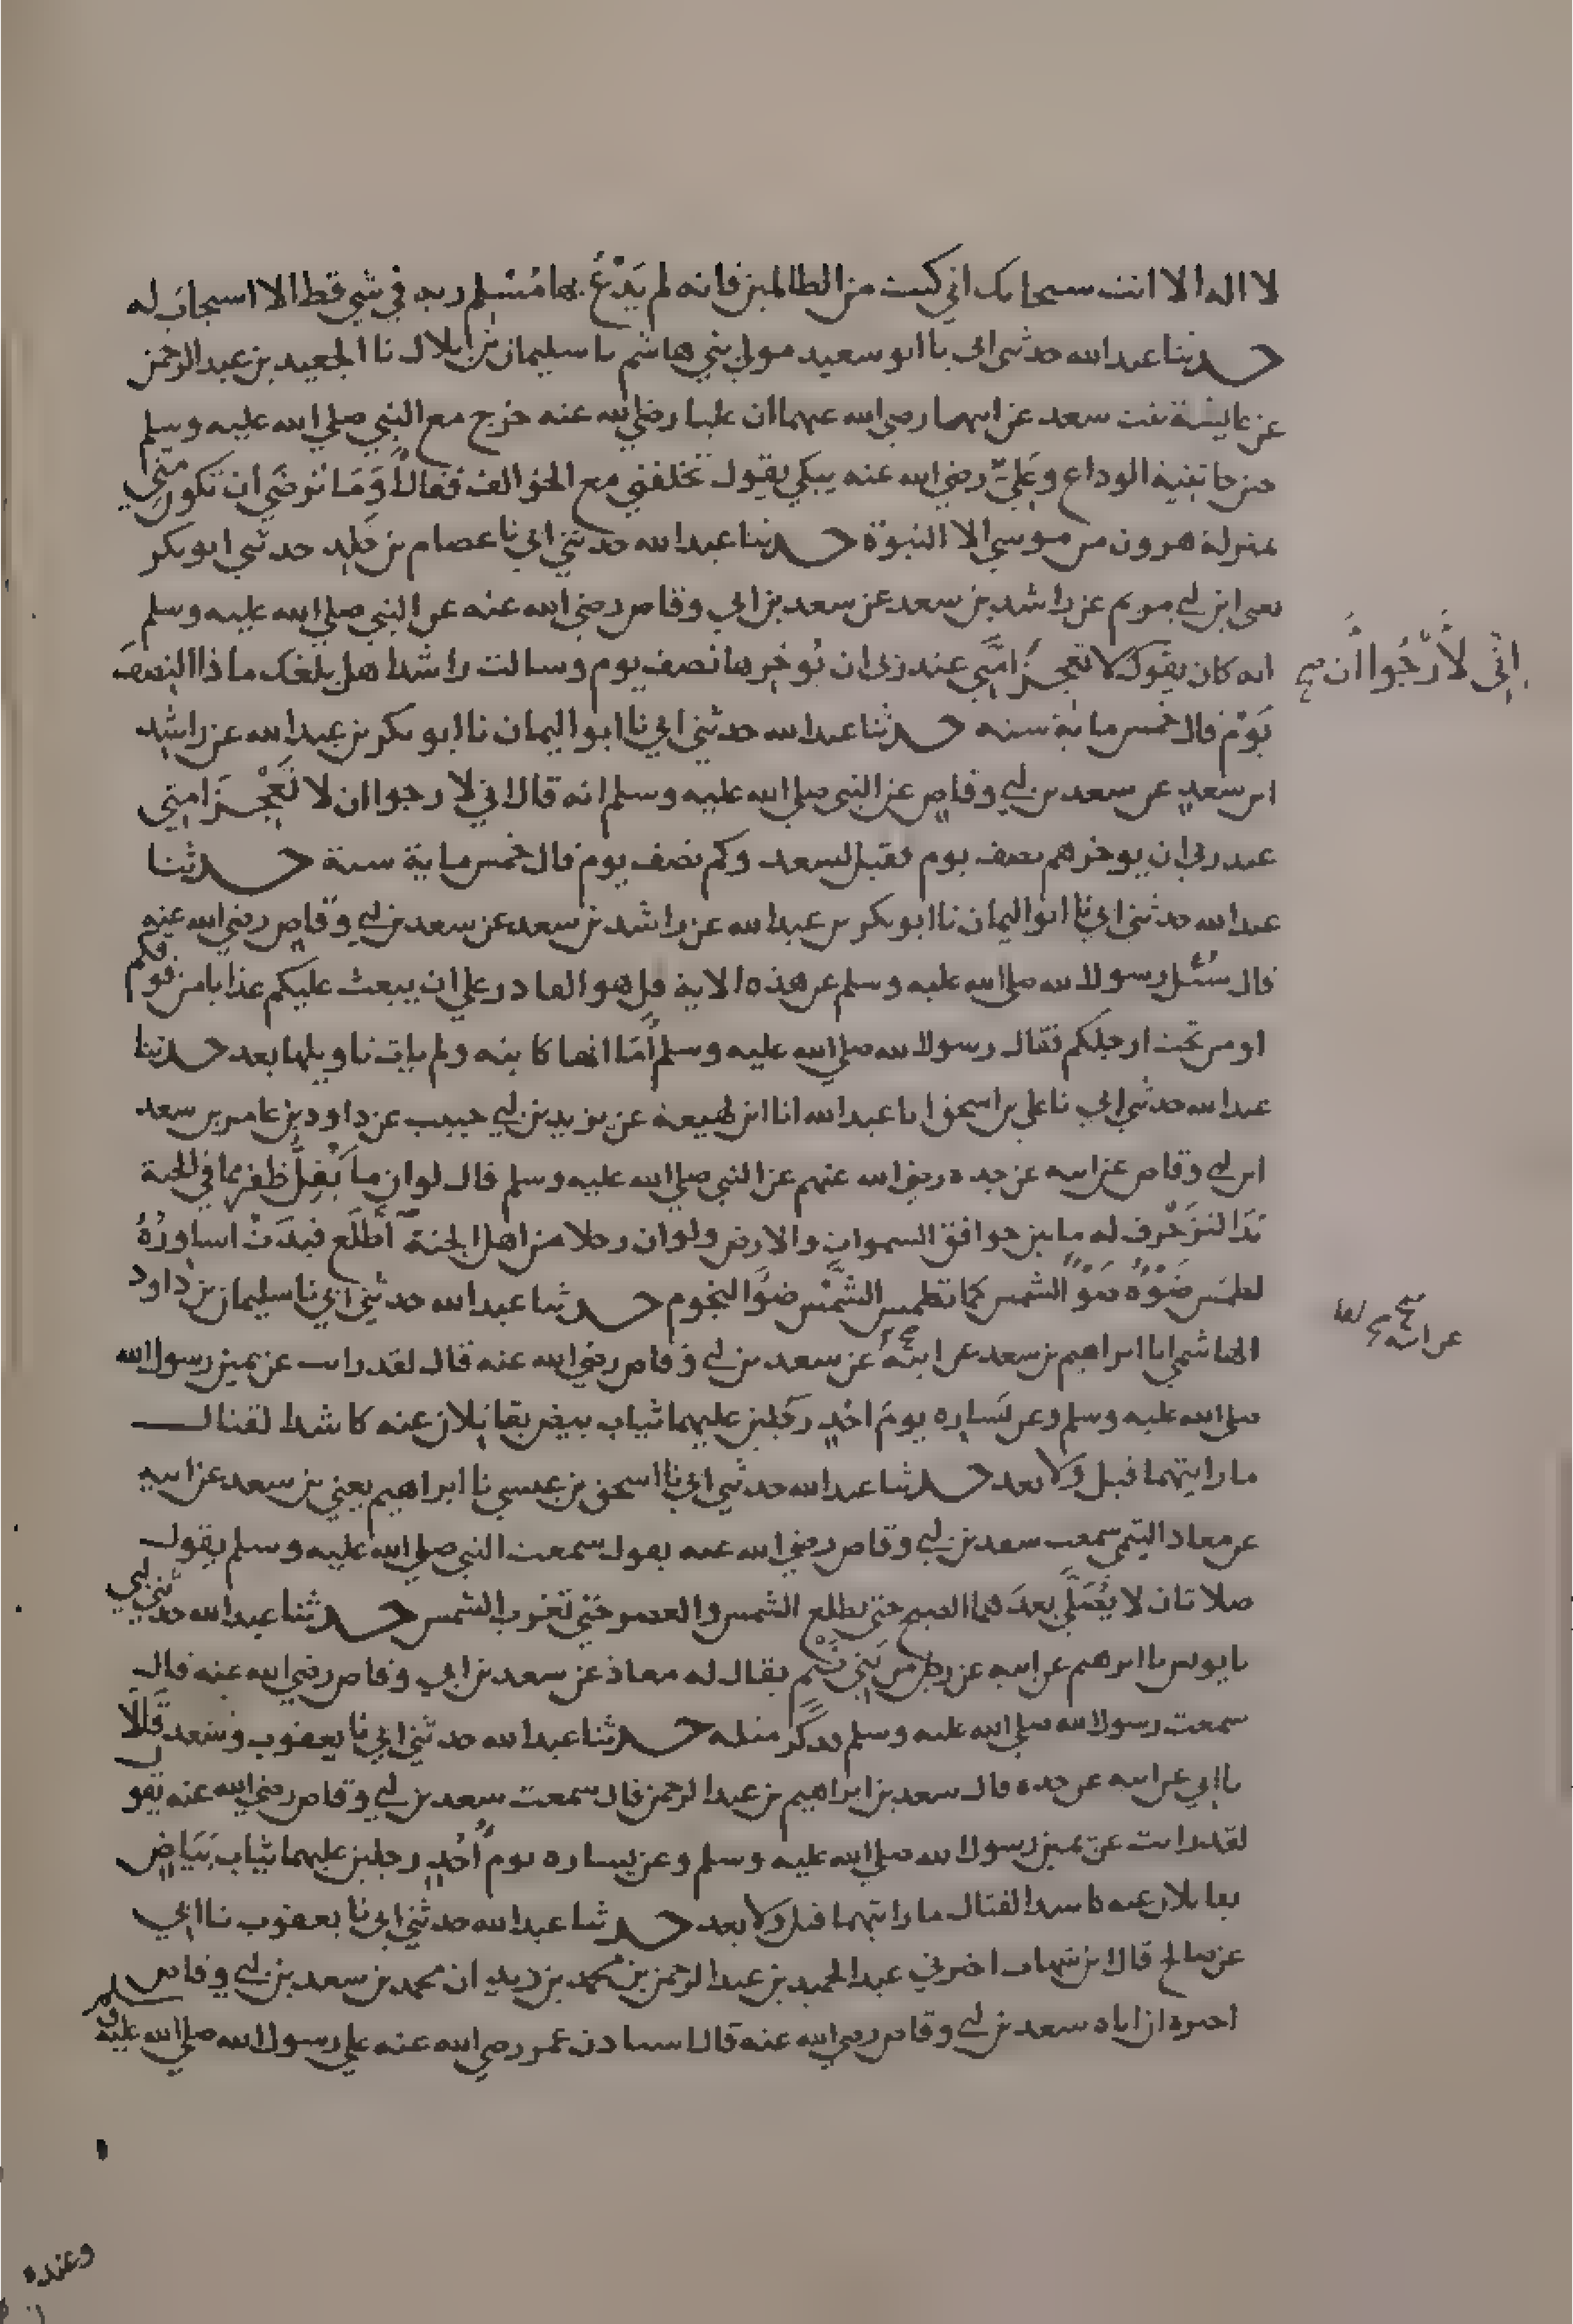 لا اله الا انت سبحانك اني كنت من الظالمين فانه لم يَدْعُ بها مُسْلِم ربه في شي قط الا استجاب له
حدثنا عبد الله حدثني ابي نا ابو سعيد مولى بني هاشم نا سليمان بن بلال نا الجعيد بن عبد الرحمن
عن عايشة بنت سعد عن ابيها رضي الله عنهما ان عليا رضي الله عنه خرج مع النبي صلى الله عليه وسلم
حتى جا ثنية الوداع وعَلِيّ رضي الله عنه يبكي يقول تخلفني مع الخوالف فقال أَوَمَا تَرضَى ان تكون مني
بمنزلة هرون من موسى الا النبوة حدثنا عبد الله حدثني ابي نا عصام بن خلد حدثني ابو بكر
يعني ابن ابي مريم عن راشد بن سعد عن سعد بن ابي وقاص رضي الله عنه عن النبي صلى الله عليه وسلم
انه كان يقول لا تعجز امتي عند ربي ان يُوخرها نصف يوم وسالت راشدا هل بلغك ماذا النصف
اِنّي لأَرْجُوا أن صح
يَوْم قال خمس ماية سنه حدثنا عبد الله حدثني ابي نا ابو اليمان نا ابو بكر بن عبد الله عن راشد
ابن سعد عن سعد بن ابي وقاص عن النبي صلى الله عليه وسلم انه قال اني لارجوا ان لا تَعْجِزَ امتي
عند ربي ان يوخرهم نصف يوم فقيل لسعد وكم نصف يوم قال خمس ماية سنة حدثنا
عبد الله حدثني ابي نا ابو اليمان نا ابو بكر بن عبد الله عن راشد بن سعد عن سعد بن ابي وقاص رضي الله عنه
قال سُئل رسول الله صلى الله عليه وسلم عن هذه الاية قل هو القادر على ان يبعث عليكم عذابا من فوقكم
او من تحت ارجلكم فقال رسول الله صلى الله عليه وسلم أمَا انها كاينه ولم يات تاويلها بعد حدثنا
عبد الله حدثني ابي نا علي بن اسحق انا عبد الله انا ابن لهيعة عن يزيد بن ابي حبيب عن داود بن عامر بن سعد
ابن ابي وقاص عن ابيه عن جده رضي الله عنهم عن النبي صلى الله عليه وسلم قال لو ان ما يُقِلُّ ظفر مما في الجنة
بَدَا لتزَخْرف له ما بين خوافق السموات والارض ولو ان رجلا من اهل الجنة أطَّلَع فبَدَتْ اساورُهُ
لطمس ضَوْوُه ضَوْءَ الشمس كما تطمس الشَّمْس ضَوْءَ النجوم حدثنا عبد الله حدثني ابي نا سليمان بن داود
الهاشمي انا ابراهيم بن سعد عن ابيه عن سعد بن ابي وقاص رضي الله عنه قال لقد رايت عن يمين رسول الله
صلى الله عليه وسلم وعن يَساره يومَ احُدٍ رَجُلين عليهما ثياب بيض يقاتلان عنه كاشد القتال
ما رايتهما قبل ولا بعد حدثنا عبد الله حدثني ابي نا اسحق بن عيسى نا ابراهيم يعني بن سعد عن ابيه
عن معاذ التيمي سمعت سعد بن ابي وقاص رضي الله عنه يقول سمعت النبي صلى الله عليه وسلم يقول
صلاتان لا يُصَلَّى بعدَهما الصبح حتى تطلع الشمس والعصر حتى تغرب الشمس حدثنا عبد الله حدثني ابي
نا يونس نا ابرهيم عن ابيه عن رجل من بَني تَيْم يقال له معاذ عن سعد بن ابي وقاص رضي الله عنه قال
سمعت رسول الله صلى الله عليه وسلم فذكر مثله حدثنا عبد الله حدثني ابي نا يعقوب وسَعد قالا
نا ابي عن ابيه عن جده قال سعد بن ابراهيم بن عبد الرحمن قال سمعت سعد بن ابي وقاص رضي الله عنه يقول
لقد رايت عن يمين رسول الله صلى الله عليه وسلم وعن يساره يومَ أُحُدٍ رجلين عليهما ثياب بَيَاض
يقاتلان عنه كاشد القتال ما رايتهما قبل ولا بعد حدثنا عبد الله حدثني ابي نا يعقوب نا ابي
عن صالح قال ابن شهاب اخبرني عبد الحميد بن عبد الرحمن بن محمد بن زيد ان محمد بن سعد بن ابي وقاص
اخبره ان اباه سعد بن ابي وقاص رضي الله عنه قال استاذن عمر رضي الله عنه على رسول الله صلى الله عليه وسلم
وعنده